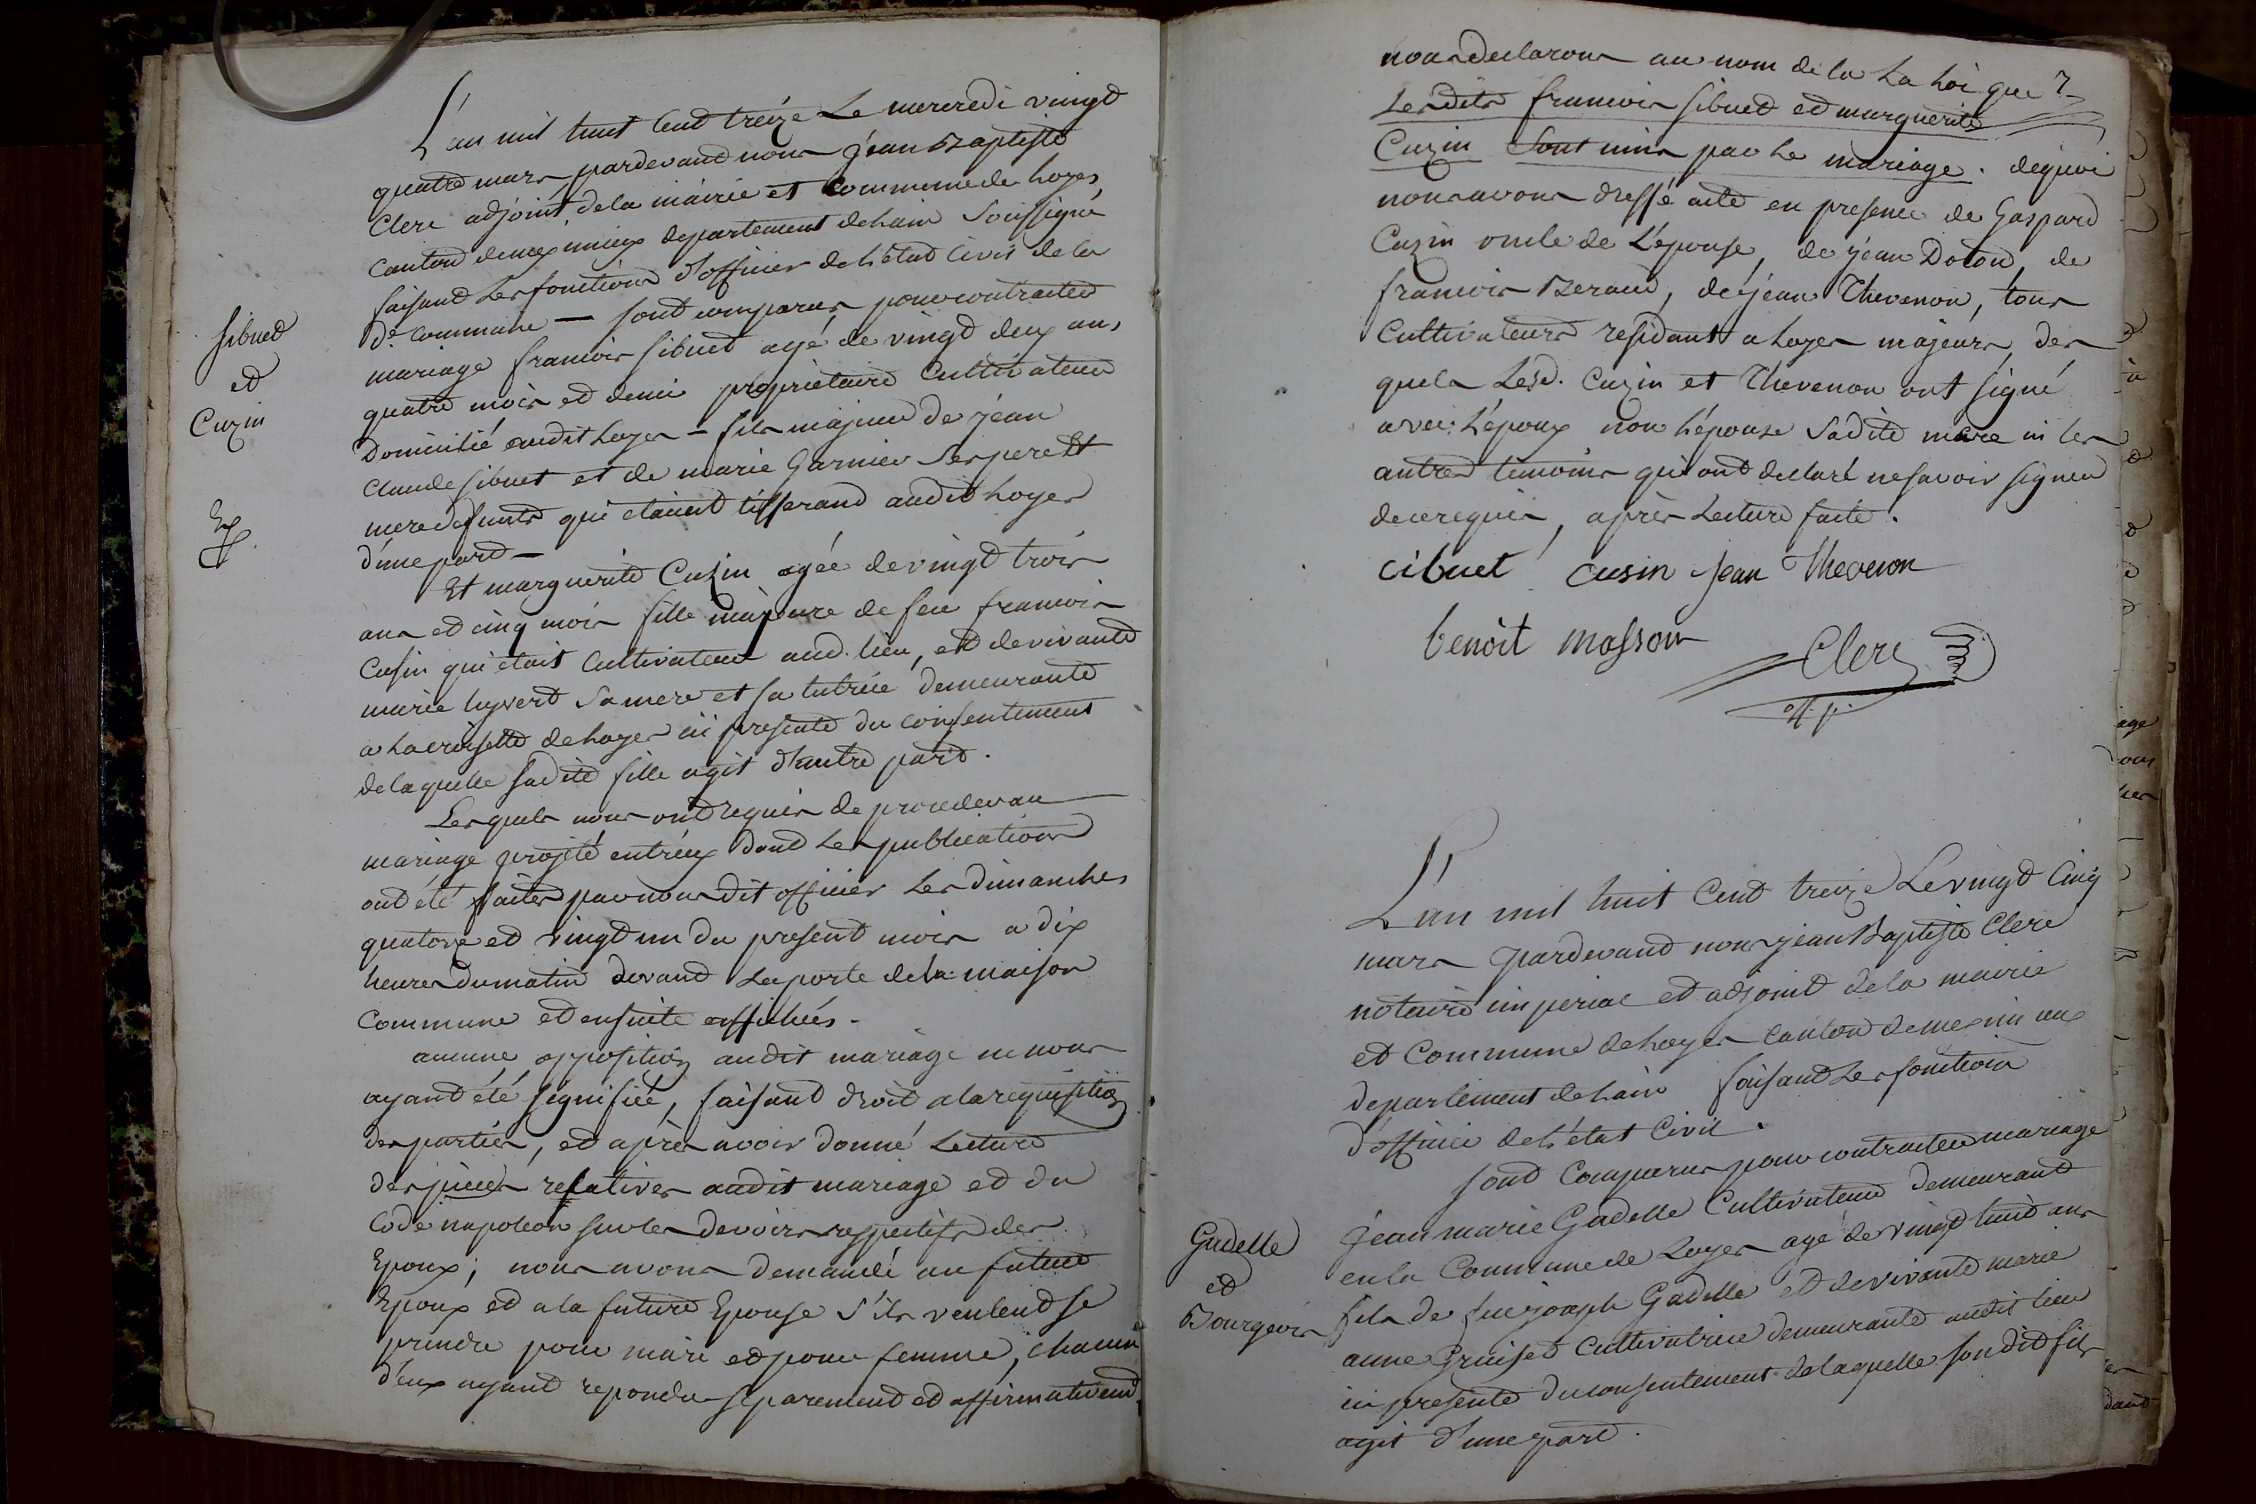 L'an mil huit Cent treize Le mercredi vingt
quatre mars pardevant nous jean Baptiste
Clerc adjoint de la mairie et commune de Loyes,
canton demeximieux departement de Lain Soussigné
faisant Les fonctions d'officier de L'état Civil de la
de commune — sont comparus pour contracter
mariage francois sibuet agé de vingt deux ans
quatre mois et demi propriétaire Cultivateur
Domicilié audit Loyes - fils majeur de jean
Claude sibuet et de marie Garnier Ses pere Et
mere defunts qui etaient tisserand audit Loyes
d'une part —
Et marguerite Cuzin agée de vingt trois
ans et cinq mois fille majeure de feu francois
Cusin qui était Cultivateur aud. lieu, et de vivante
marie luyvert Sa mere et sa tutrice demeurante
a La croisette de Loyes ici presente du consentement
de laquelle sadite fille agit d'autre part.
Lesquels nous ont requis de proceder au
mariage projeté entr'eux dont Les publications
ont été faites par nous dit officier Les dimanches
quatorze et vingt un du present mois a dix
heures du matin devant La porte de la maison
Commune et ensuite affichées.
aucune opposition audit mariage ne nous
ayant été signifiée, faisant droit a la requisition
des parties, et après avoir donné Lecture
des pieces relatives audit mariage et du
Code napoleon sur les devoirs respectifs des
Epoux ; nous avons demandé au futur
Epoux et a la future Epouse s'ils veulent se
prendre pour mari et pour femme, chacun
d'eux ayant repondu séparement et affirmativemt
sibuet
et
Cuzin
nous declarons au nom de la La Loi que
Lesdits francois sibuet et marguerite
Cuzin Sont unis par Le mariage. dequoi
nous avons dressé acte en presence de Gaspard
Cuzin oncle de L'épouse, de jean Doton, de
francois Beraud, de jean Thevenon, tous
Cultivateurs residant a Loyes majeurs, des
quels Lesd. Cuzin et Thevenon ont signé
avec L'époux non L'épouse Sadite mere ni les
autres temoins qui ont declaré ne savoir signer
de ce requis, après Lecture faite.
cibuet cusin jean Thevenon
benoit masson
Clerc
L'an mil huit Cent treize Le vingt Cinq
mars pardevant nous jean Baptiste Clerc
notaire imperial et adjoint de la mairie
et Commune de Loyes canton de meximieux
departement de Lain faisant Les fonctions
d'officier de L'état Civil.
sont Comparus pour contracter mariage
jean marie Gadelle Cultivateur demeurant
en la Commune de Loyes agé de vingt huit ans
fils de feu joseph Gadelle et de vivante marie
anne Gruiset cultivatrice demeurante audit lieu
ici presente du consentement de laquelle son dit fils
agit d'une part.
Gadelle
et
Bourgeois